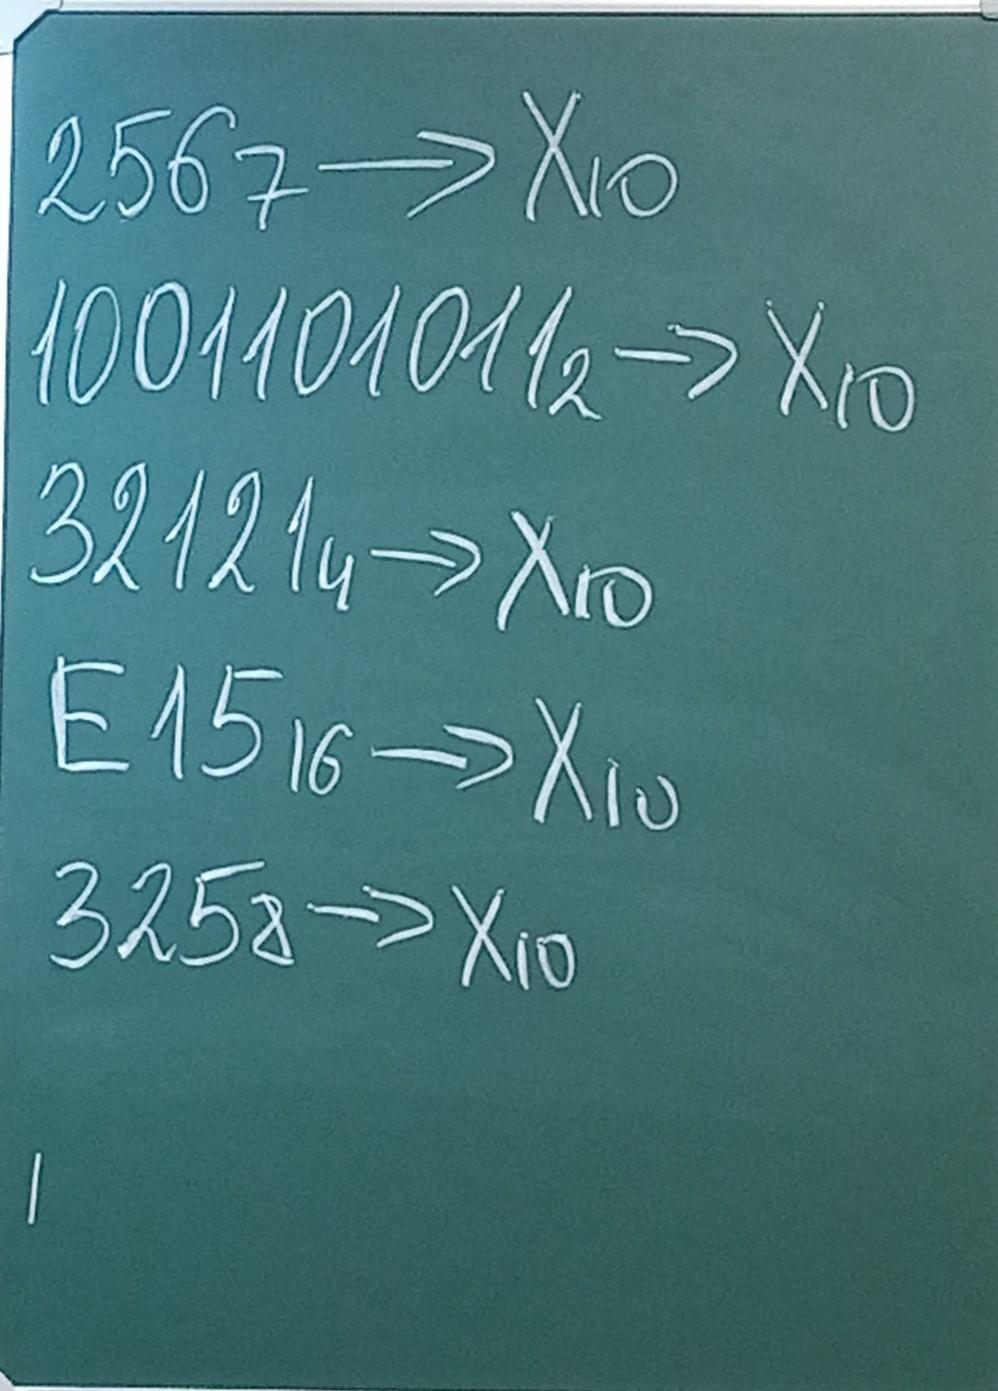 256₇ → X₁₀
1001101011₂ → X₁₀
32121₄ → X₁₀
E15₁₆ → X₁₀
325₈ → X₁₀
|